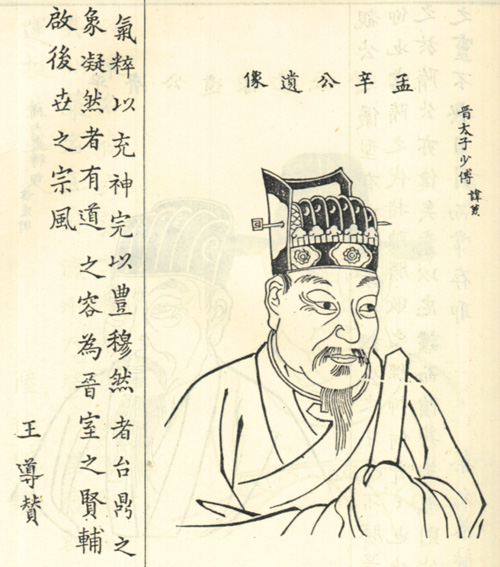 晉太子少傅 諱
孟辛公遺像
氣粹以充神完以豊穆然者台鼎之
象凝然者有道之容為晉室之賢輔
啟後世之宗風
王導贊